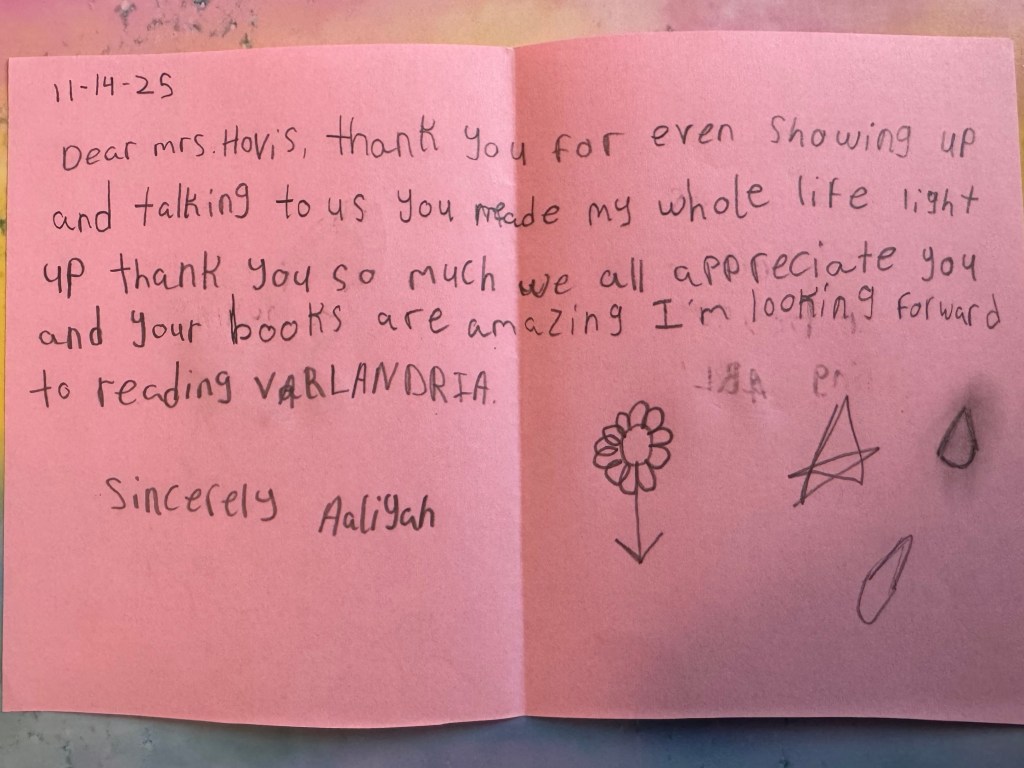 11-14-25
Dear mrs. Hovis, thank you for even showing up
and talking to us you made my whole life light
up thank you so much we all appreciate you
and your books are amazing I'm looking forward
to reading VARLANDRIA.
Sincerely Aaliyah